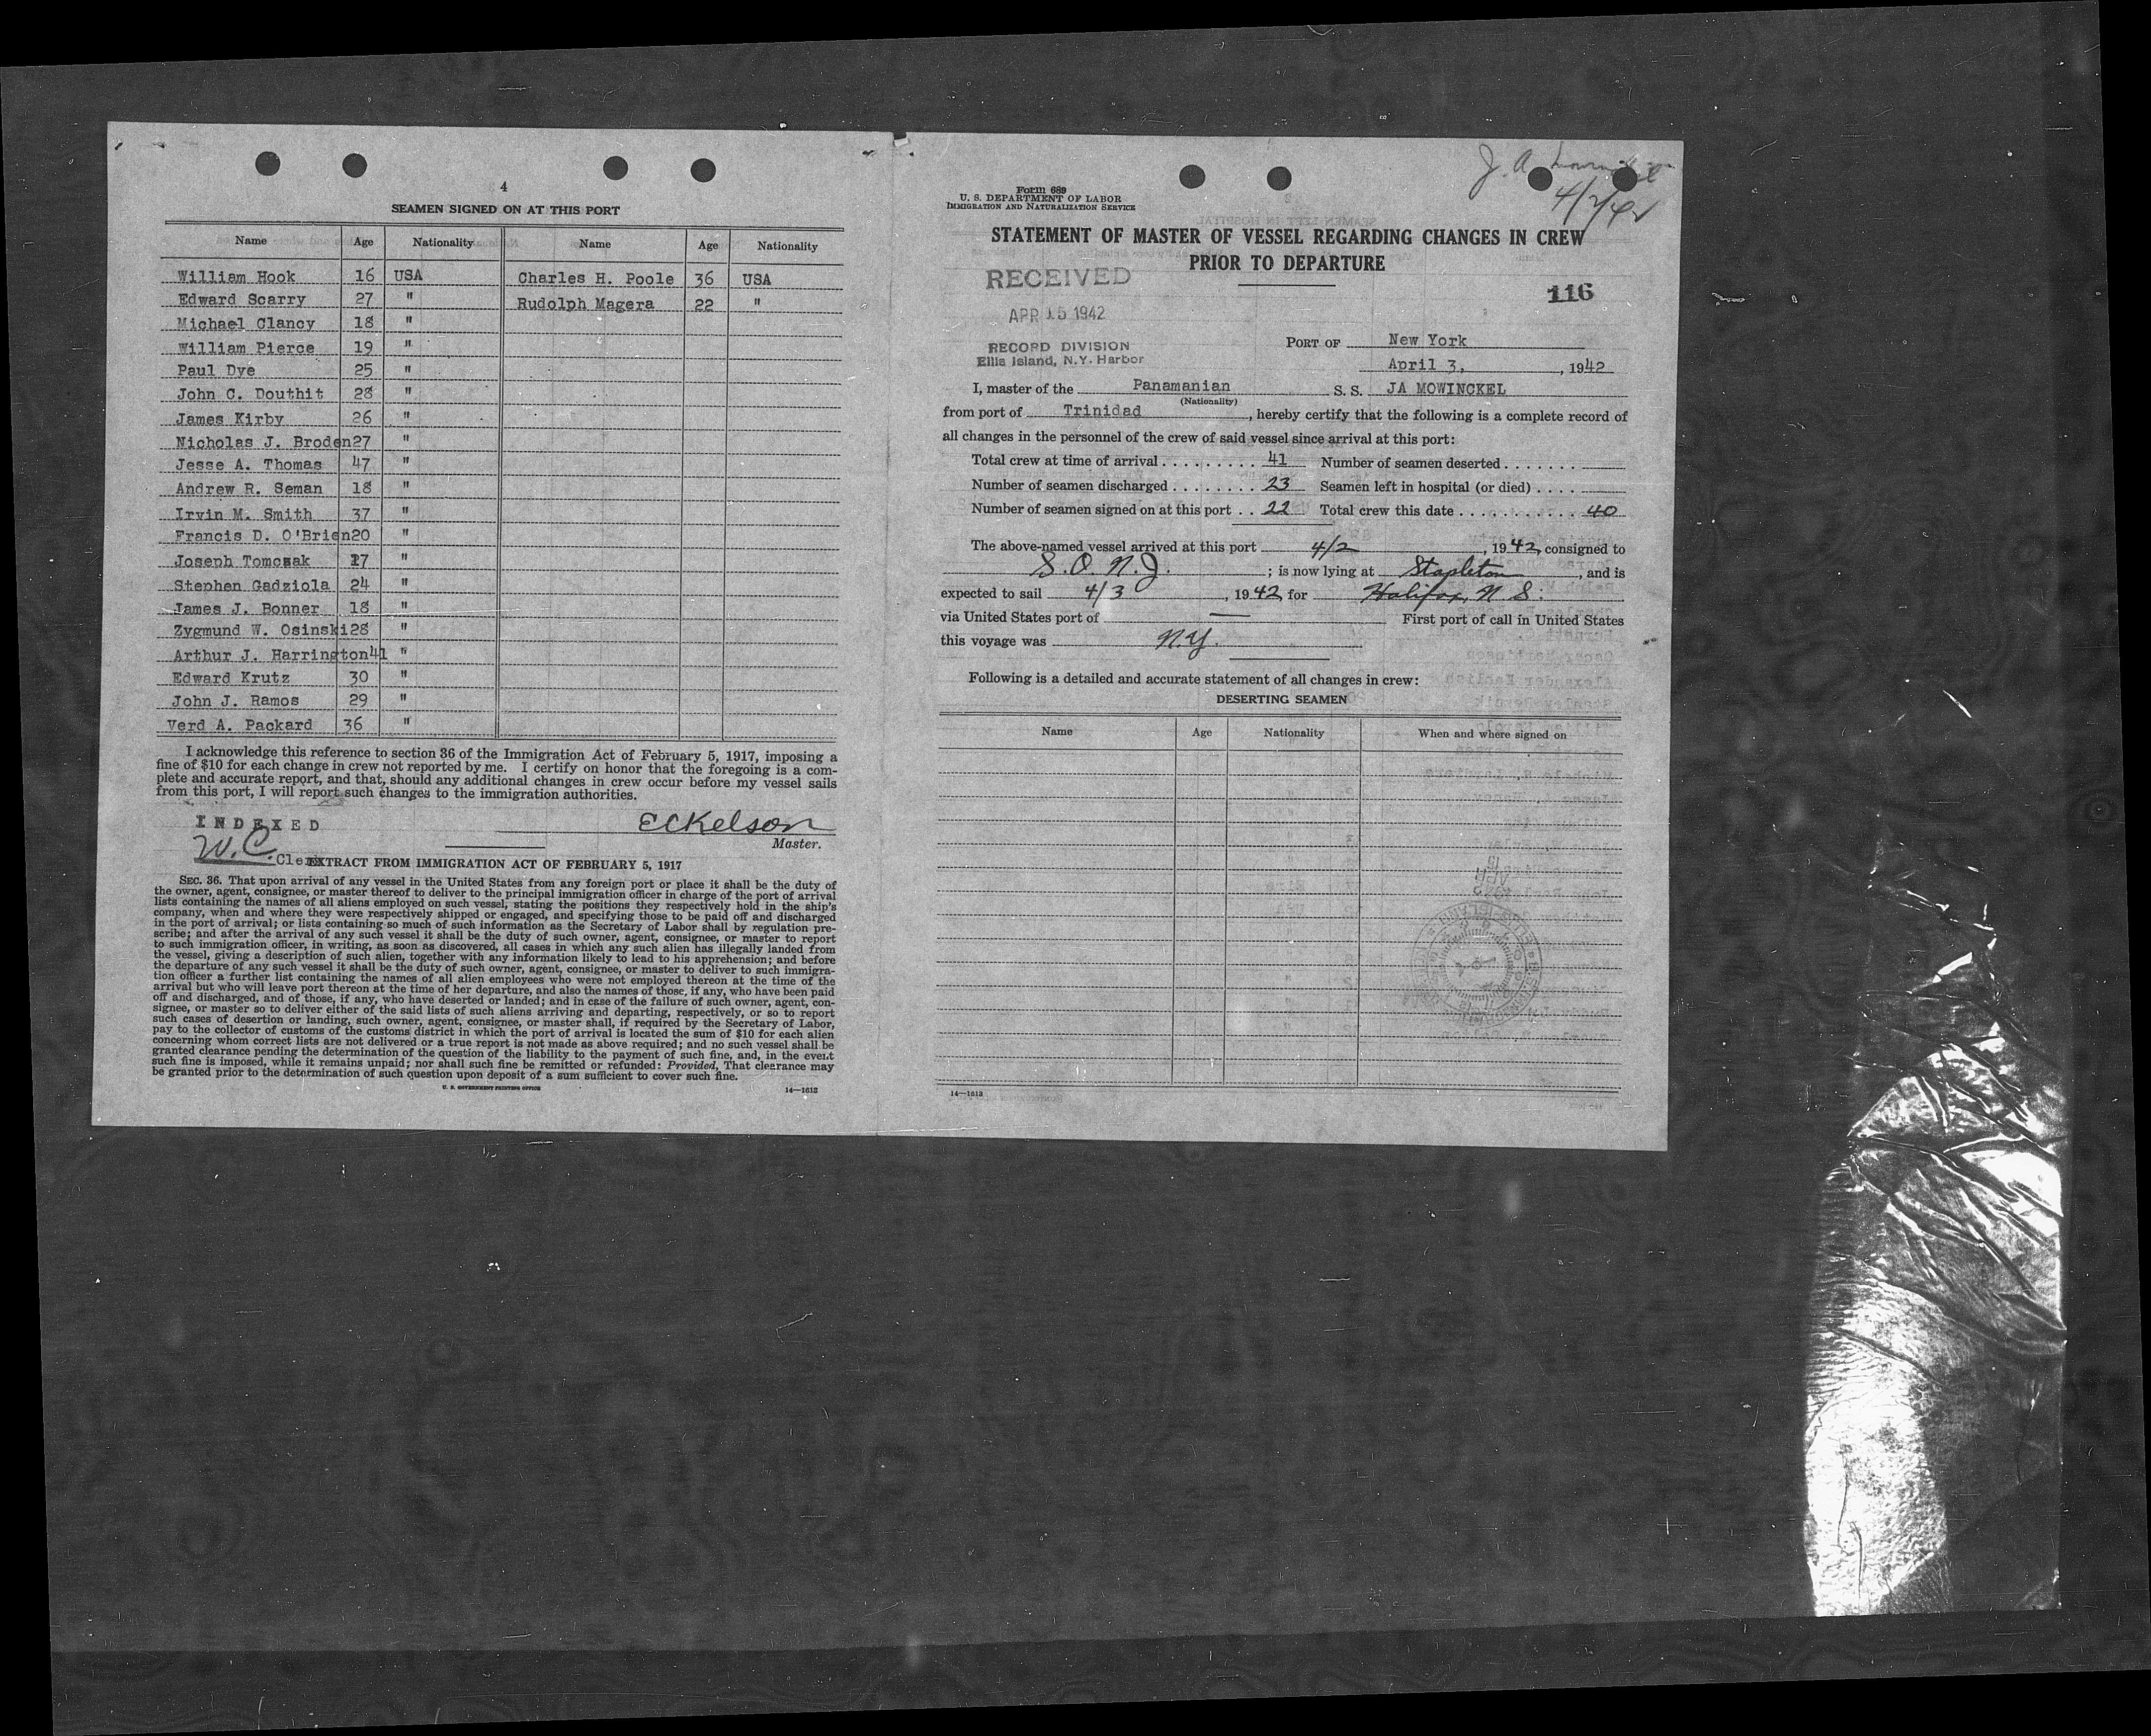 4
SEAMEN SIGNED ON AT THIS PORT
Name Age Nationality Name Age Nationality
William Hook 16 USA Charles H. Poole 36 USA
Edward Scarry 27 " Rudolph Magera 22 "
Michael Clancy 18 "
William Pierce 19 "
Paul Dye 25 "
John C. Douthit 28 "
James Kirby 26 "
Nicholas J. Broden 27 "
Jesse A. Thomas 47 "
Andrew R. Seman 18 "
Irvin M. Smith 37 "
Francis D. O'Brien 20 "
Joseph Tomczak 17 "
Stephen Gadziola 24 "
James J. Bonner 18 "
Zygmund W. Osinski 28 "
Arthur J. Harrington 41 "
Edward Krutz 30 "
John J. Ramos 29 "
Verd A. Packard 36 "
I acknowledge this reference to section 36 of the Immigration Act of February 5, 1917, imposing a
fine of $10 for each change in crew not reported by me. I certify on honor that the foregoing is a com-
plete and accurate report, and that, should any additional changes in crew occur before my vessel sails
from this port, I will report such changes to the immigration authorities.
INDEXED
ECKelson
Master.
W.C. Clerk
EXTRACT FROM IMMIGRATION ACT OF FEBRUARY 5, 1917
SEC. 36. That upon arrival of any vessel in the United States from any foreign port or place it shall be the duty of
the owner, agent, consignee, or master thereof to deliver to the principal immigration officer in charge of the port of arrival
lists containing the names of all aliens employed on such vessel, stating the positions they respectively hold in the ship's
company, when and where they were respectively shipped or engaged, and specifying those to be paid off and discharged
in the port of arrival; or lists containing so much of such information as the Secretary of Labor shall by regulation pre-
scribe; and after the arrival of any such vessel it shall be the duty of such owner, agent, consignee, or master to report
to such immigration officer, in writing, as soon as discovered, all cases in which any such alien has illegally landed from
the vessel, giving a description of such alien, together with any information likely to lead to his apprehension; and before
the departure of any such vessel it shall be the duty of such owner, agent, consignee, or master to deliver to such immigra-
tion officer a further list containing the names of all alien employees who were not employed thereon at the time of the
arrival but who will leave port thereon at the time of her departure, and also the names of those, if any, who have been paid
off and discharged, and of those, if any, who have deserted or landed; and in case of the failure of such owner, agent, con-
signee, or master so to deliver either of the said lists of such aliens arriving and departing, respectively, or so to report
such cases of desertion or landing, such owner, agent, consignee, or master shall, if required by the Secretary of Labor,
pay to the collector of customs of the customs district in which the port of arrival is located the sum of $10 for each alien
concerning whom correct lists are not delivered or a true report is not made as above required; and no such vessel shall be
granted clearance pending the determination of the question of the liability to the payment of such fine, and, in the event
such fine is imposed, while it remains unpaid; nor shall such fine be remitted or refunded: Provided, That clearance may
be granted prior to the determination of such question upon deposit of a sum sufficient to cover such fine.
U. S. GOVERNMENT PRINTING OFFICE 14—1613
J. A.
4/2/42
Form 689
U. S. DEPARTMENT OF LABOR
IMMIGRATION AND NATURALIZATION SERVICE
STATEMENT OF MASTER OF VESSEL REGARDING CHANGES IN CREW
PRIOR TO DEPARTURE
RECEIVED
APR 15 1942
RECORD DIVISION
Ellis Island, N.Y. Harbor
116
PORT OF New York
April 3, , 1942
I, master of the Panamanian S. S. JA MOWINCKEL
(Nationality)
from port of Trinidad , hereby certify that the following is a complete record of
all changes in the personnel of the crew of said vessel since arrival at this port:
Total crew at time of arrival . . . . . . . . . 41 Number of seamen deserted . . . . . . .
Number of seamen discharged . . . . . . . . 23 Seamen left in hospital (or died) . . . .
Number of seamen signed on at this port . . 22 Total crew this date . . . . . . . . . . . 40
The above-named vessel arrived at this port 4/2 , 1942, consigned to
S.O.N.J. ; is now lying at Stapleton , and is
expected to sail 4/3 , 1942, for Halifax, N S.
via United States port of — First port of call in United States
this voyage was N.Y.
Following is a detailed and accurate statement of all changes in crew:
DESERTING SEAMEN
Name Age Nationality When and where signed on
14—1613